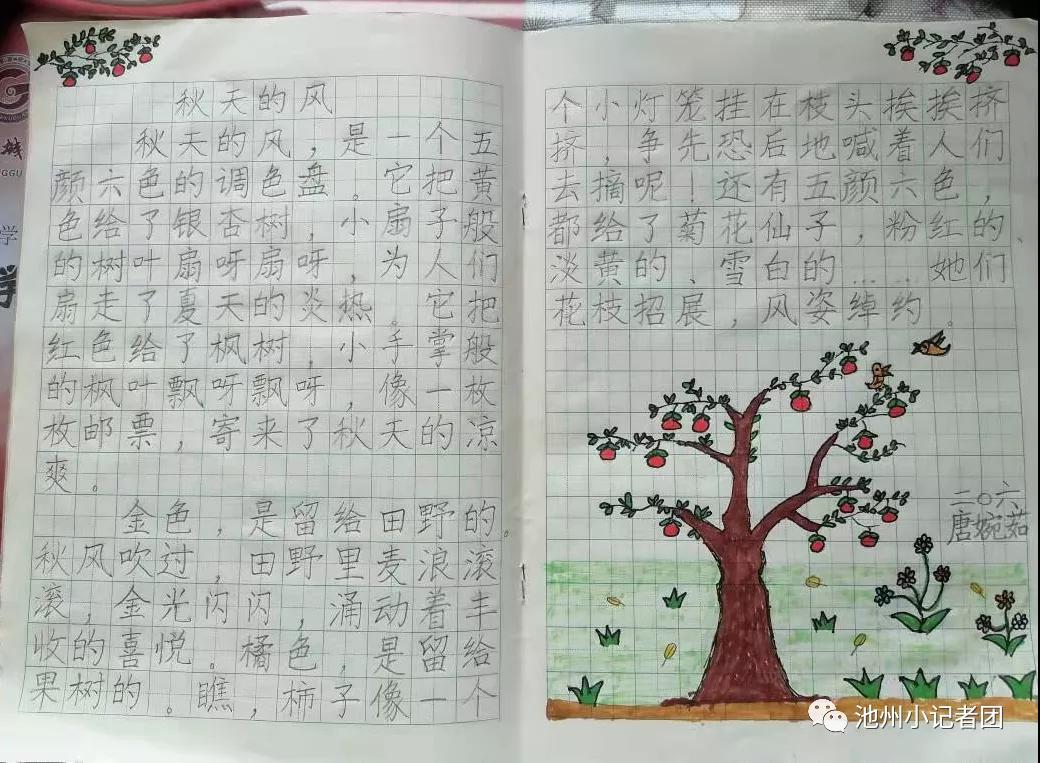 秋天的风
秋天的风，是一个五
颜六色的调色盘。它把黄
色给了银杏树，小扇子般
的树叶扇呀扇呀，为人们
扇走了夏天的炎热。它把
红色给了枫树，小手掌般
的枫叶飘呀飘呀，像一枚
枚邮票，寄来了秋天的凉
爽。
金色，是留给田野的。
秋风吹过，田野里麦浪滚
滚，金光闪闪，涌动着丰
收的喜悦。橘色，是留给
果树的。瞧，柿子像一个
个小灯笼挂在枝头挨挨挤
挤，争先恐后地喊着人们
去摘呢！还有五颜六色，
都给了菊花仙子，粉红的、
淡黄的、雪白的……她们
花枝招展，风姿绰约。
二〇六
唐婉茹
池州小记者团